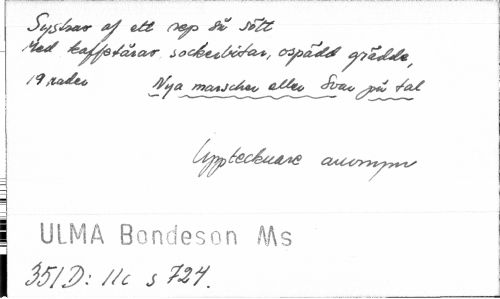 Systrar af ett rep så sött
Med kaffetårar, sockerbitar, ospädd grädde,
19 rader Nya marscher eller Svar på tal
Upptecknare anonym
ULMA Bondeson Ms
351D: 11c s 724.